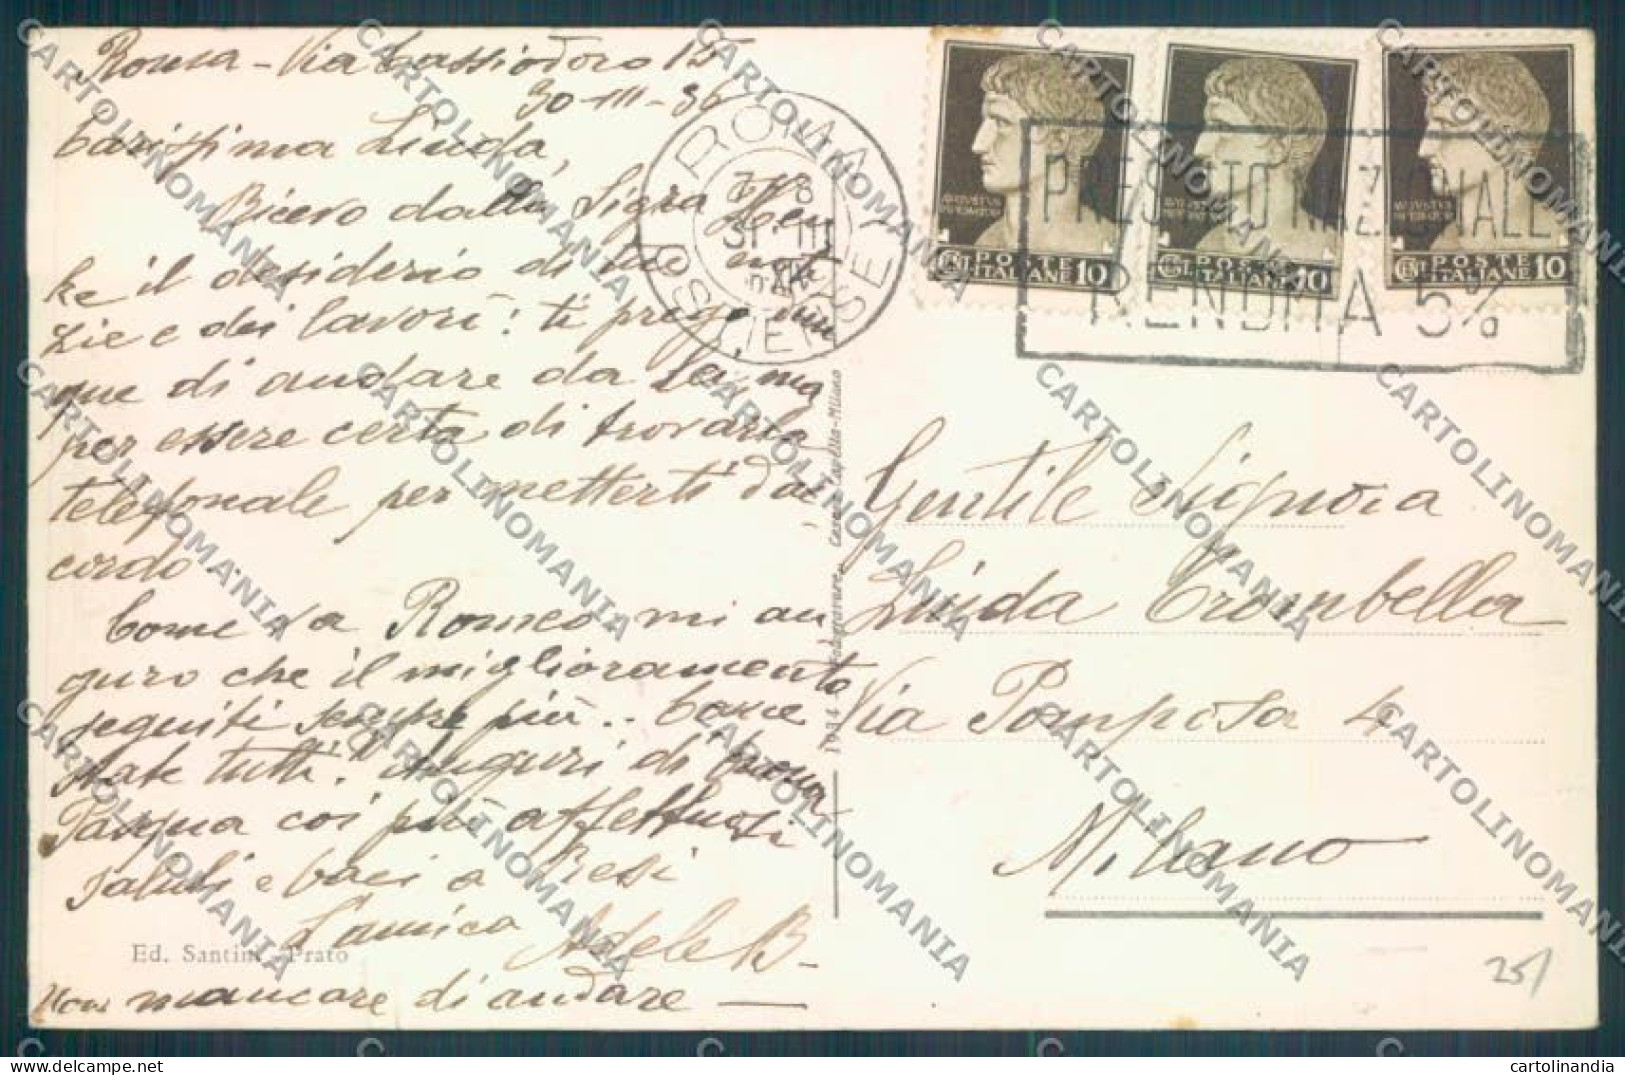 Roma - Via Cassiodoro 15
30-III-36
Carissima Linda,
Ricevo dalla Sigra Men
ke il desiderio di tue noti
zie e dei lavori: ti prego, 
que di andare da Lei, ma
per essere certa di trovarla
telefonale per metterti d'ac
cordo.
Come va Romeo, mi au
guro che il miglioramento
seguiti sempre più.. Come
state tutti? Auguri di buona
Pasqua coi più affettuosi
saluti e baci a 
L'amica Adele B-
Ed. Santini - Prato
Non mancare di andare —
ROMA
31 III
POSTE
PRESTITO NAZIONALE
RENDITA 5%
AVGVSTVS
IMPERATOR
CENT. POSTE ITALIANE 10
AVGVSTVS
IMPERATOR
CENT. POSTE ITALIANE 10
AVGVSTVS
IMPERATOR
CENT. POSTE ITALIANE 10
Milano
Gentile Signora
Linda Trombella
Via Pomposa 4
Milano
25/
CARTOLINOMANIA
cartolinomania.com
cartolinandia